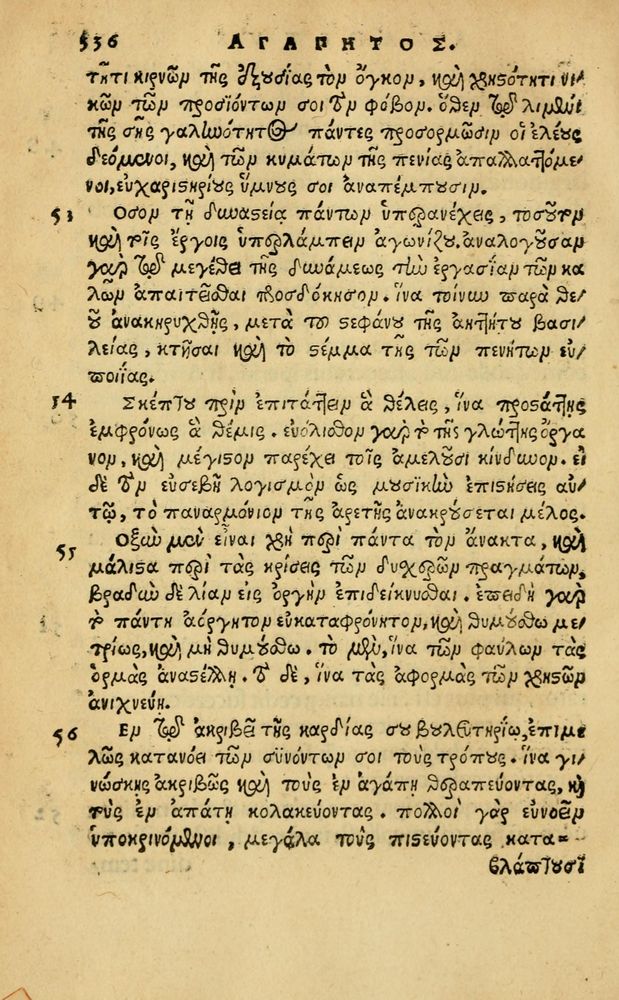 536 ΑΓΑΠΗΤΟΣ.
τητι κιρνῶν τῆς ἐξουσίας τὸν ὄγκον, καὶ χρηστότητι νι-
κῶν τῶν προσϊόντων σοι τὸν φόβον. ὅθεν τῷ λιμένι
τῆς σῆς γαλωότητος πάντες προσορμῶσιν οἱ ἐλέους
δεόμενοι, καὶ τῶν κυμάτων τῆς πενίας ἀπαλλαττόμε-
νοι, εὐχαριστηρίους ὕμνους σοι ἀναπέμπουσιν.
53 Οσον τῇ δυναστείᾳ πάντων ὑπερανέχεις, τοσοῦτον
καὶ τοῖς ἔργοις ὑπερλάμπειν ἀγωνίζου. ἀναλογοῦσαν
γὰρ τῷ μεγέθει τῆς δυνάμεως τὴν ἐργασίαν τῶν κα
λῶν ἀπαιτεῖσθαι προσδόκησον. ἵνα τοίνυν παρὰ θε-
οῦ ἀνακηρυχθῇς, μετὰ τοῦ στεφάνου τῆς ἀηττήτου βασι-
λείας, κτῆσαι καὶ τὸ στέμμα τῆς τῶν πενήτων εὐ-
ποιΐας.
54 Σκέπτου πρὶν ἐπιτάττειν ἃ θέλεις, ἵνα προστάττῃς
ἐμφρόνως ἃ θέμις. εὐόλισθον γὰρ τὸ τῆς γλώττης ὄργα
νον, καὶ μέγιστον παρέχει τοῖς ἀμελοῦσι κίνδυνον. εἰ
δὲ τὸν εὐσεβῆ λογισμὸν ὡς μουσικὸν ἐπιστήσεις αὐ-
τῷ, τὸ παναρμόνιον τῆς ἀρετῆς ἀνακρούσεται μέλος.
55 Οξὺν μὲν εἶναι χρὴ περὶ πάντα τὸν ἄνακτα, καὶ
μάλιστα περὶ τὰς κρίσεις τῶν δυχερῶν πραγμάτων,
βραδὺν δὲ λίαν εἰς ὀργὴν ἐπιδείκνυσθαι. ἐπειδὴ γὰρ
τὸ πάντῃ ἀόργητον εὐκαταφρόνητον, καὶ θυμούσθω με-
τρίως, καὶ μὴ θυμούσθω. τὸ μὲν, ἵνα τῶν φαύλων τὰς
ὁρμὰς ἀναστέλλῃ. τὸ δὲ, ἵνα τὰς ἀφορμὰς τῶν χρηστῶν
ἀνιχνεύῃ.
56 Εν τῷ ἀκριβεῖ τῆς καρδίας σου βουλευτηρίῳ, ἐπιμε
λῶς κατανόει τῶν συνόντων σοι τοὺς τρόπους. ἵνα γι-
νώσκῃς ἀκριβῶς καὶ τοὺς ἐν ἀγάπῃ θεραπεύοντας, καὶ
τοὺς ἐν ἀπάτῃ κολακεύοντας. πολλοὶ γὰρ εὐνοεῖν
ὑποκρινόμενοι, μεγάλα τοὺς πιστεύοντας κατα-
βλάπτουσι